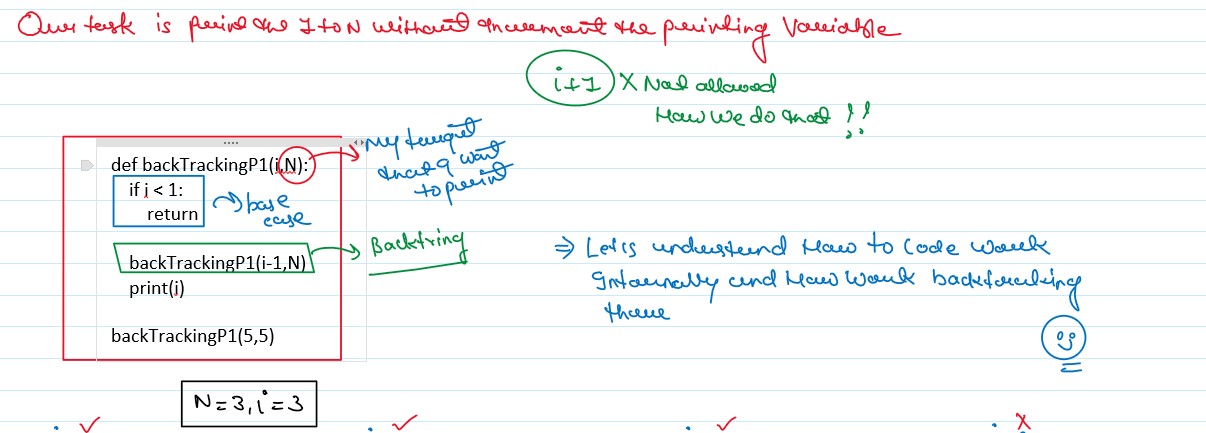 Our task is print the 1 to N without increment the printing Variable
i+1 X Not allowed
How We do that !!
def backTrackingP1(i,N):
if i < 1:
return
backTrackingP1(i-1,N)
print(i)
backTrackingP1(5,5)
My target
that I want
to print
base
case
Backtring
⇒ Let's understand How to Code Work
Internally and How Work backtracking
there
N=3, i=3